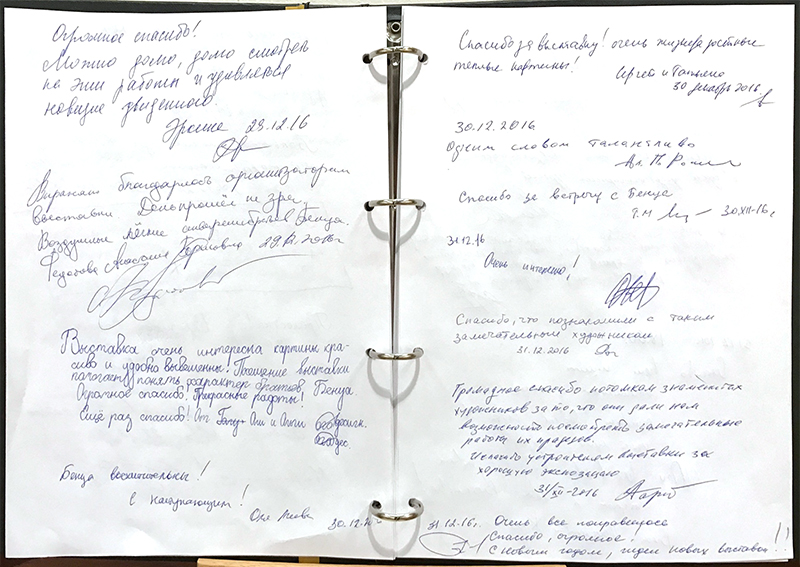 Огромное спасибо!
Можно долго, долго смотреть
на эти работы и удивляться
новизне увиденного.
29.12.16
Выражаю благодарность организаторам
выставки. День прошёл не зря.
Воздушные легкие акварели братьев Бенуа.
Федотова Анастасия 29.12.2016г
Выставка очень интересна картины кра-
сиво и удобно вывешены. Посещение выставки
помогает понять характер братьев Бенуа.
Огромное спасибо! Прекрасные работы!
Ещё раз спасибо! От Ани и
Бенуа восхитительны!
С наступающим!
Оля 30.12.16
Спасибо за выставку! очень жизнерадостные
теплые картины!
Сергей и Татьяна
30 декабря 2016
30.12.2016
Одним словом талантливо
Спасибо за встречу с Бенуа
30.XII-16г
31.12.16
Очень интересно!
Спасибо, что познакомили с таким
замечательным художником
31.12.2016
Громадное спасибо потомкам знаменитых
художников за то, что они дали нам
возможность посмотреть замечательные
работы их предков.
И спасибо устроителям выставки за
хорошую экспозицию
31/XII-2016
31.12.16г. Очень все понравилось
Спасибо, огромное!
С новым годом, ждем новых выставок!!